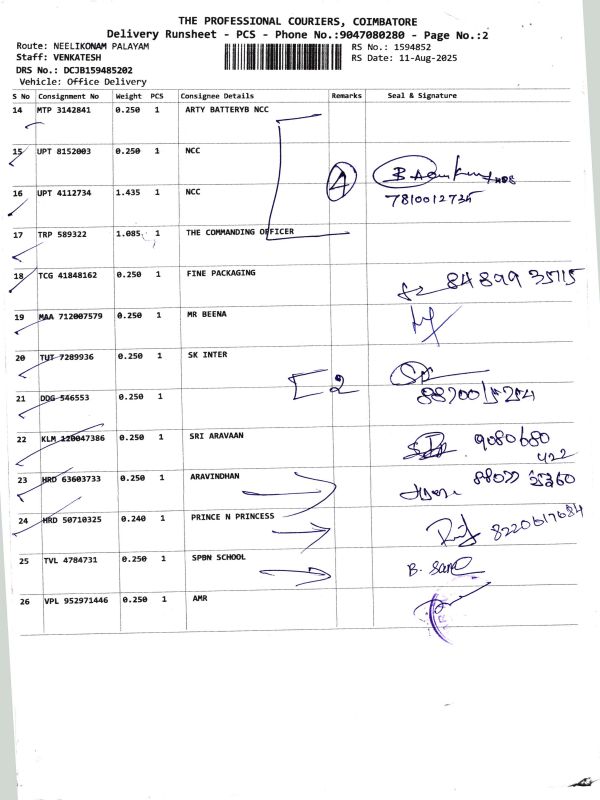 THE PROFESSIONAL COURIERS, COIMBATORE
Delivery Runsheet - PCS - Phone No.:9047080280 - Page No.:2
Route: NEELIKONAM PALAYAM
RS No.: 1594852
Staff: VENKATESH
RS Date: 11-Aug-2025
DRS No.: DCJB159485202
Vehicle: Office Delivery
S No Consignment No Weight PCS Consignee Details Remarks Seal & Signature
14 MTP 3142841 0.250 1 ARTY BATTERYB NCC
15 UPT 8152003 0.250 1 NCC
16 UPT 4112734 1.435 1 NCC 4
7810012735
17 TRP 589322 1.085 1 THE COMMANDING OFFICER
18 TCG 41848162 0.250 1 FINE PACKAGING 84899 35715
19 MAA 712007579 0.250 1 MR BEENA
20 TUT 7289936 0.250 1 SK INTER
2
21 DDG 546553 0.250 1
22 KLM 120047386 0.250 1 SRI ARAVAAN 9080680
422
23 HRD 63603733 0.250 1 ARAVINDHAN
24 HRD 50710325 0.240 1 PRINCE N PRINCESS 8220617684
25 TVL 4784731 0.250 1 SPBN SCHOOL B.
26 VPL 952971446 0.250 1 AMR